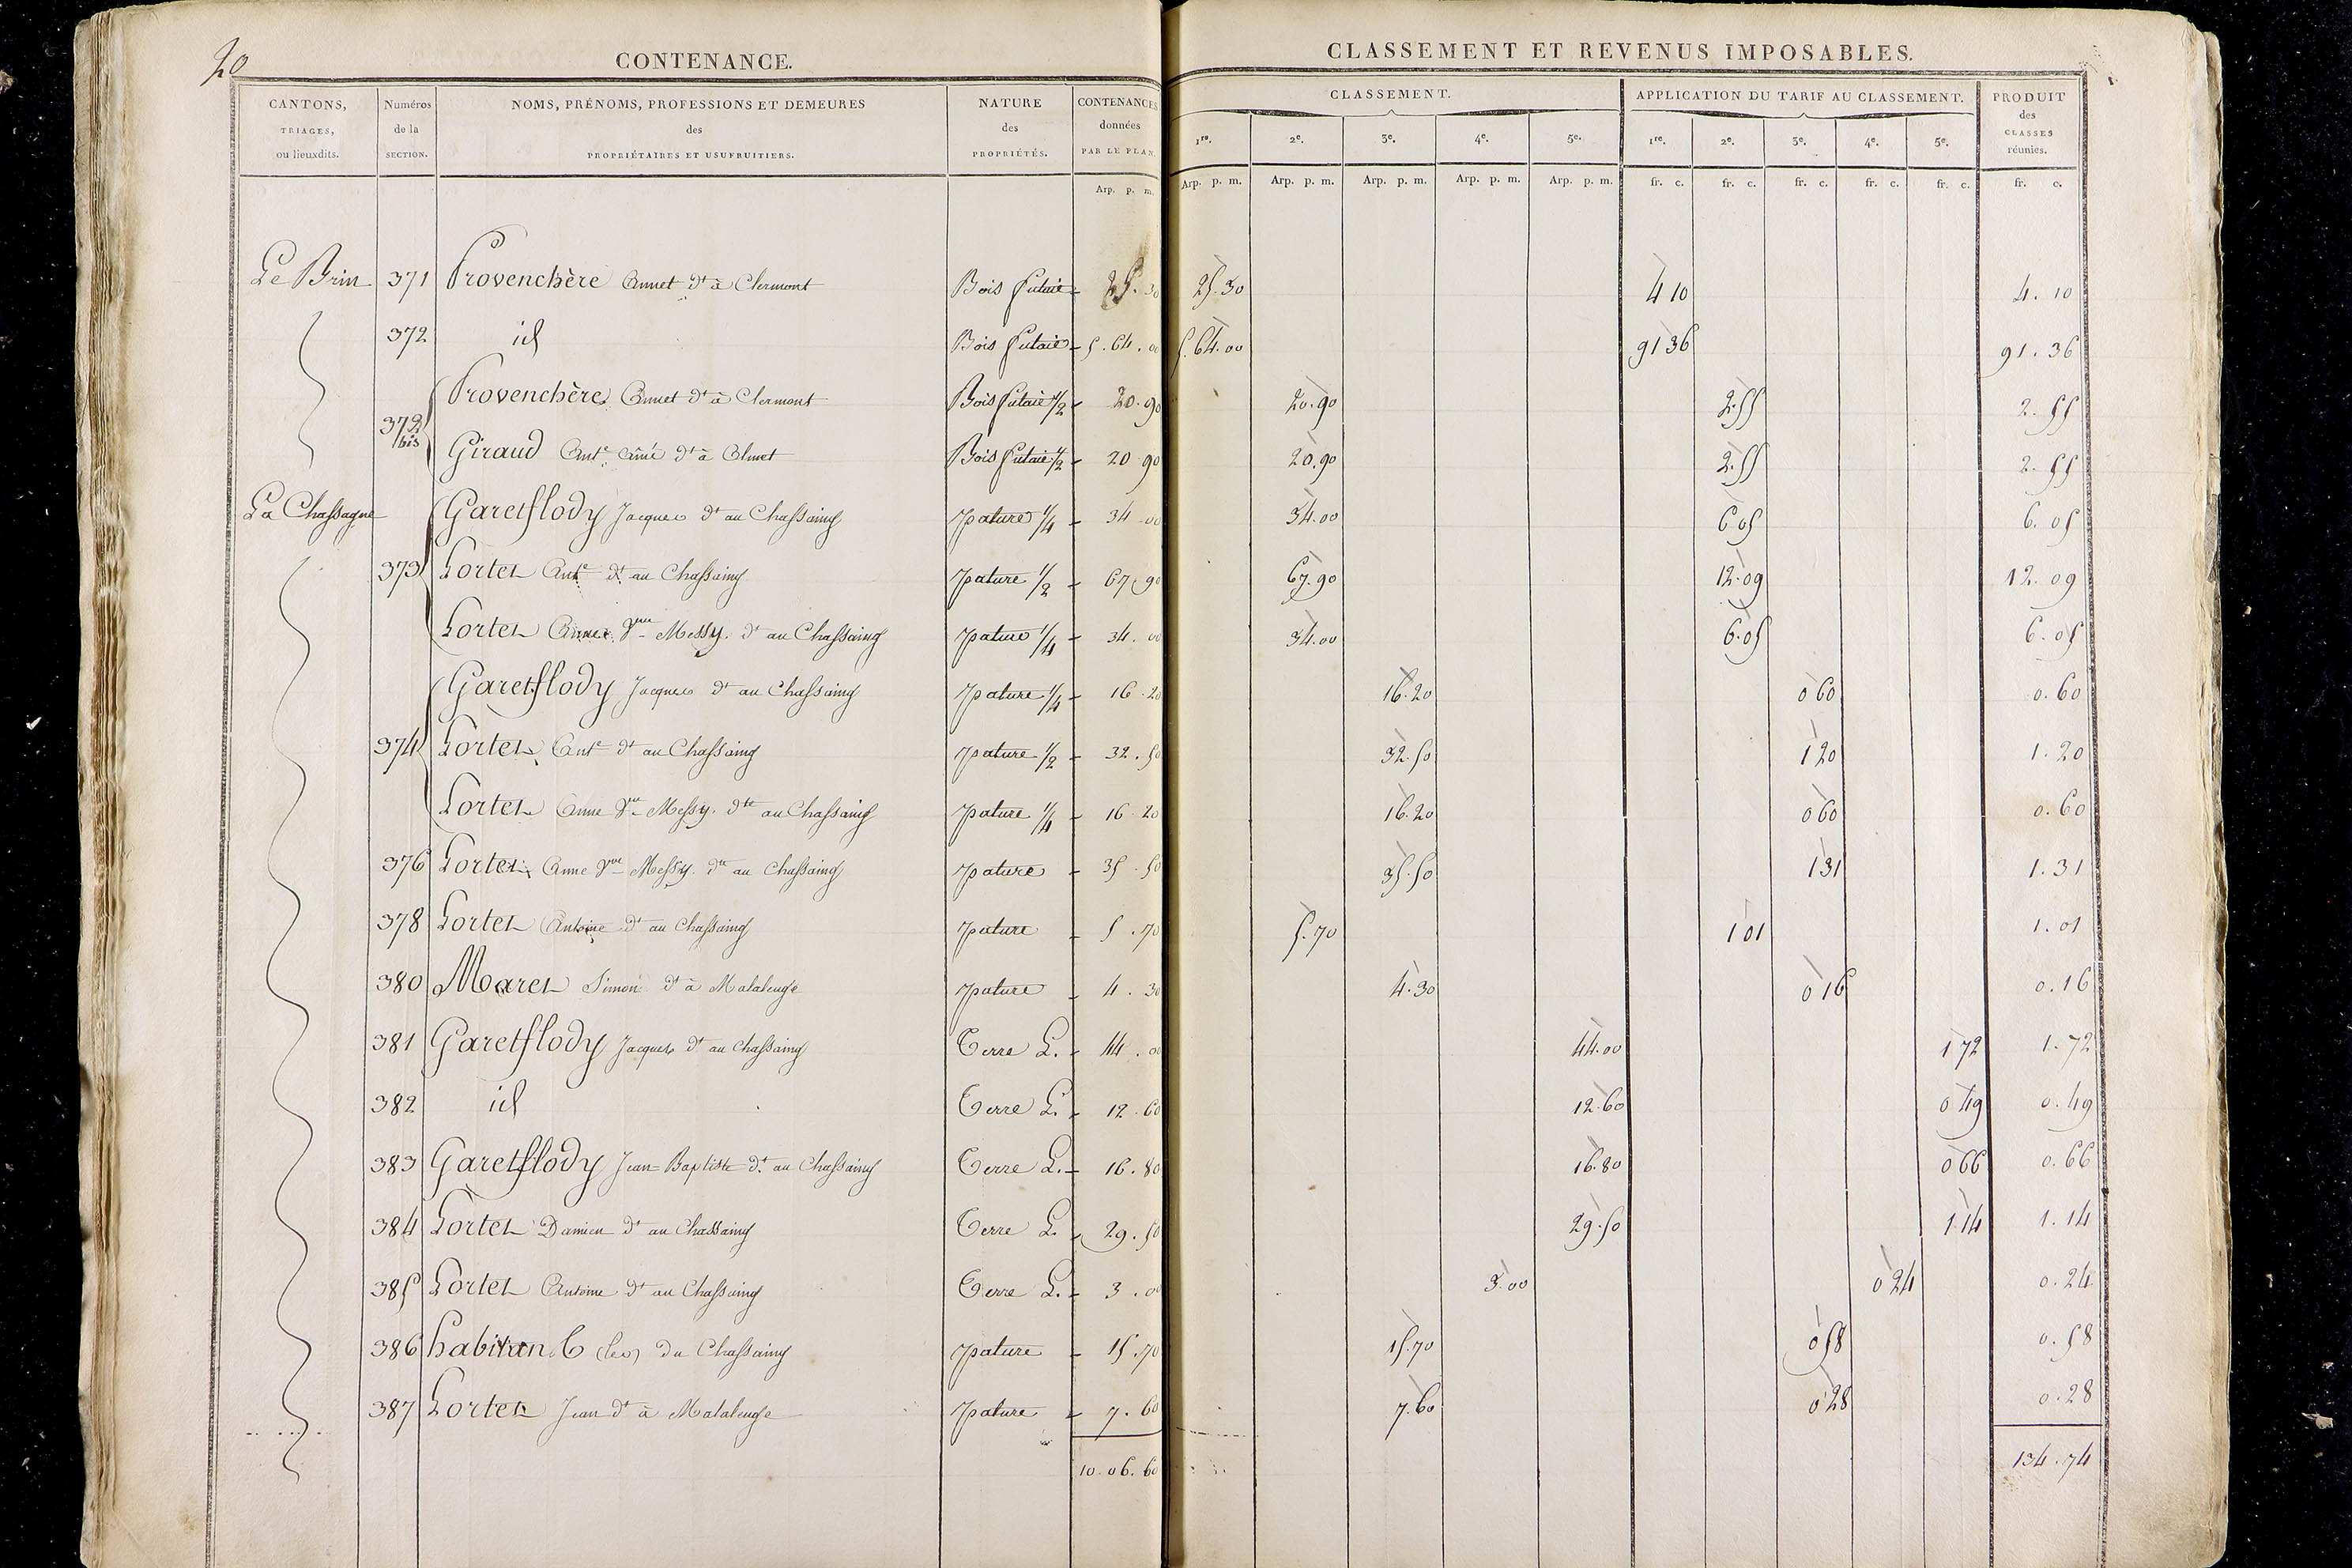 20
CONTENANCE.
CLASSEMENT ET REVENUS IMPOSABLES.
CANTONS, TRIAGES, ou lieuxdits. Numéros de la SECTION. NOMS, PRÉNOMS, PROFESSIONS ET DEMEURES des PROPRIÉTAIRES ET USUFRUITIERS. NATURE des PROPRIÉTÉS. CONTENANCES données PAR LE PLAN. CLASSEMENT. APPLICATION DU TARIF AU CLASSEMENT. PRODUIT des CLASSES réunies.
1re. 2e. 3e. 4e. 5e. 1re. 2e. 3e. 4e. 5e.
Arp. p. m. Arp. p. m. Arp. p. m. Arp. p. m. Arp. p. m. Arp. p. m. fr. c. fr. c. fr. c. fr. c. fr. c. fr. c.
Le Brin 371 Provenchère Annet dt à Clermont Bois futaie 25.30 25.30 4 10 4.10
372 id Bois futaie 5.64.00 5.64.00 91 36 91.36
372 bis Provenchère Annet dt à Clermont Bois futaie 1/2 20.90 20.90 2.55 2.55
Giraud Ante ainé dt à Olmet Bois futaie 1/2 20 90 20.90 2.55 2.55
La Chassagne Garetflody Jacques dt au Chassaing pature 1/4 34 00 34.00 6 05 6.05
373 Lortet Ante dt au Chassaing pature 1/2 67 90 67.90 12.09 12.09
Lortet Anne vve Messy. dt au Chassaing pature 1/4 34.00 34.00 6.05 6.05
Garetflody Jacques dt au Chassaing pature 1/4 16.20 16.20 0 60 0.60
374 Lortet Ante dt au Chassaing pature 1/2 32.50 32.50 1 20 1.20
Lortet Anne vve Messy. dte au Chassaing pature 1/4 16 20 16.20 0 60 0.60
376 Lortet Anne vve Messy. dte au Chassaing pature 35.50 35.50 1 31 1.31
378 Lortet Antoine dt au Chassaing pature 5.70 5.70 1 01 1.01
380 Maret Simon dt à Mataleuge pature 4.30 4.30 0 16 0.16
381 Garetflody Jacques dt au Chassaing Terre L. 44.00 44.00 1 72 1.72
382 id Terre L. 12.60 12.60 0 49 0.49
383 Garetflody Jean-Baptiste dt au Chassaing Terre L. 16.80 16.80 0 66 0.66
384 Lortet Damien dt au Chassaing Terre L. 29.50 29.50 1.14 1.14
385 Lortet Antoine dt au Chassaing Terre L. 3.00 3.00 0 24 0.24
386 habitant (les) du Chassaing pature 15.70 15.70 0 58 0.58
387 Lortet Jean dt à Mataleuge pature 7.60 7.60 0 28 0.28
10.06.60 134.74